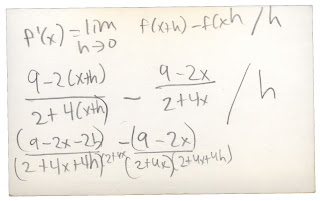 f'(x) = lim h→0 f(x+h) - f(xh / h
9-2(x+h) / 2+4(x+h) - 9-2x / 2+4x / h
(9-2x-2h) / (2+4x+4h)(2+4x - (9-2x) / (2+4x)(2+4x+4h)